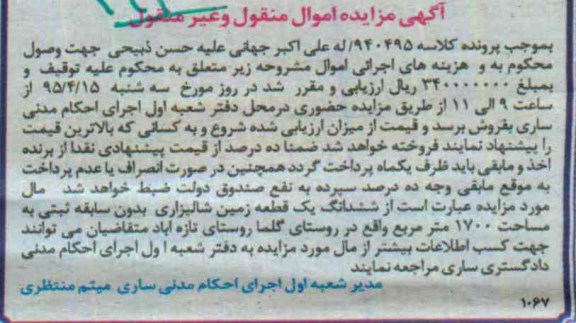 آگهی مزایده اموال منقول وغیر منقول
بموجب پرونده کلاسه ۹۴۰۴۹۵/ له علی اکبر جهانی علیه حسن ذبیحی جهت وصول
محکوم به و هزینه های اجرائی اموال مشروحه زیر متعلق به محکوم علیه توقیف و
بمبلغ ۳۴۰۰۰۰۰۰۰ ریال ارزیابی و مقرر شد در روز مورخ سه شنبه ۹۵/۴/۱۵ از
ساعت ۹ الی ۱۱ از طریق مزایده حضوری درمحل دفتر شعبه اول اجرای احکام مدنی
ساری بفروش برسد و قیمت از میزان ارزیابی شده شروع و به کسانی که بالاترین قیمت
را پیشنهاد نمایند فروخته خواهد شد ضمنا ده درصد از قیمت پیشنهادی نقدا از برنده
اخذ و مابقی باید ظرف یکماه پرداخت گردد همچنین در صورت انصراف یا عدم پرداخت
به موقع مابقی وجه ده درصد سپرده به نفع صندوق دولت ضبط خواهد شد مال
مورد مزایده عبارت است از ششدانگ یک قطعه زمین شالیزاری بدون سابقه ثبتی به
مساحت ۱۷۰۰ متر مربع واقع در روستای گلما روستای تازه اباد متقاضیان می توانند
جهت کسب اطلاعات بیشتر از مال مورد مزایده به دفتر شعبه ا ول اجرای احکام مدنی
دادگستری ساری مراجعه نمایند
مدیر شعبه اول اجرای احکام مدنی ساری میثم منتظری
۱۰۶۷